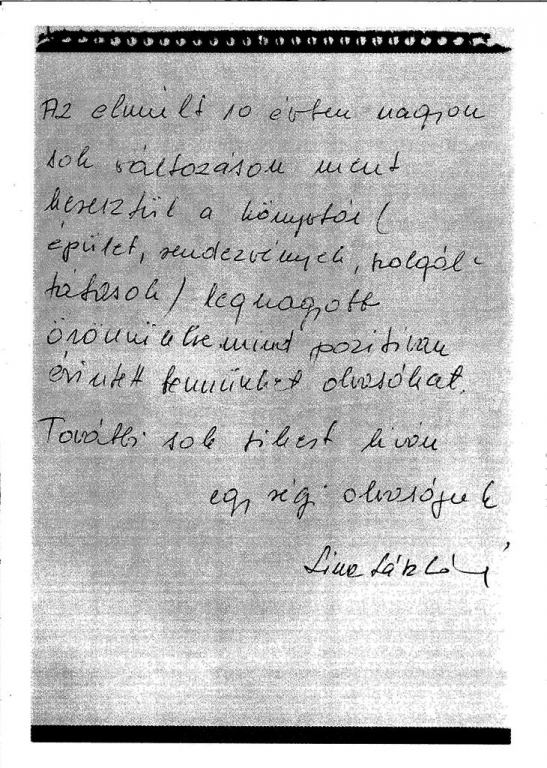 Az elmúlt 10 évben nagyon
sok változáson ment
keresztül a könyvtár (
épület, rendezvények, szolgál-
tatások) legnagyobb
örömünkre mind pozitivan
érintett bennünket olvasókat.
További sok sikert kiván
egy régi olvasójuk
Lászlóné